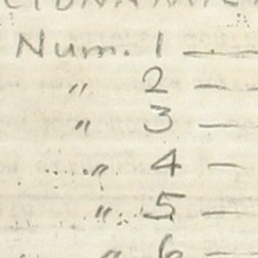 Num. 1 —
" 2 —
" 3 —
" 4 —
" 5 —
" 6